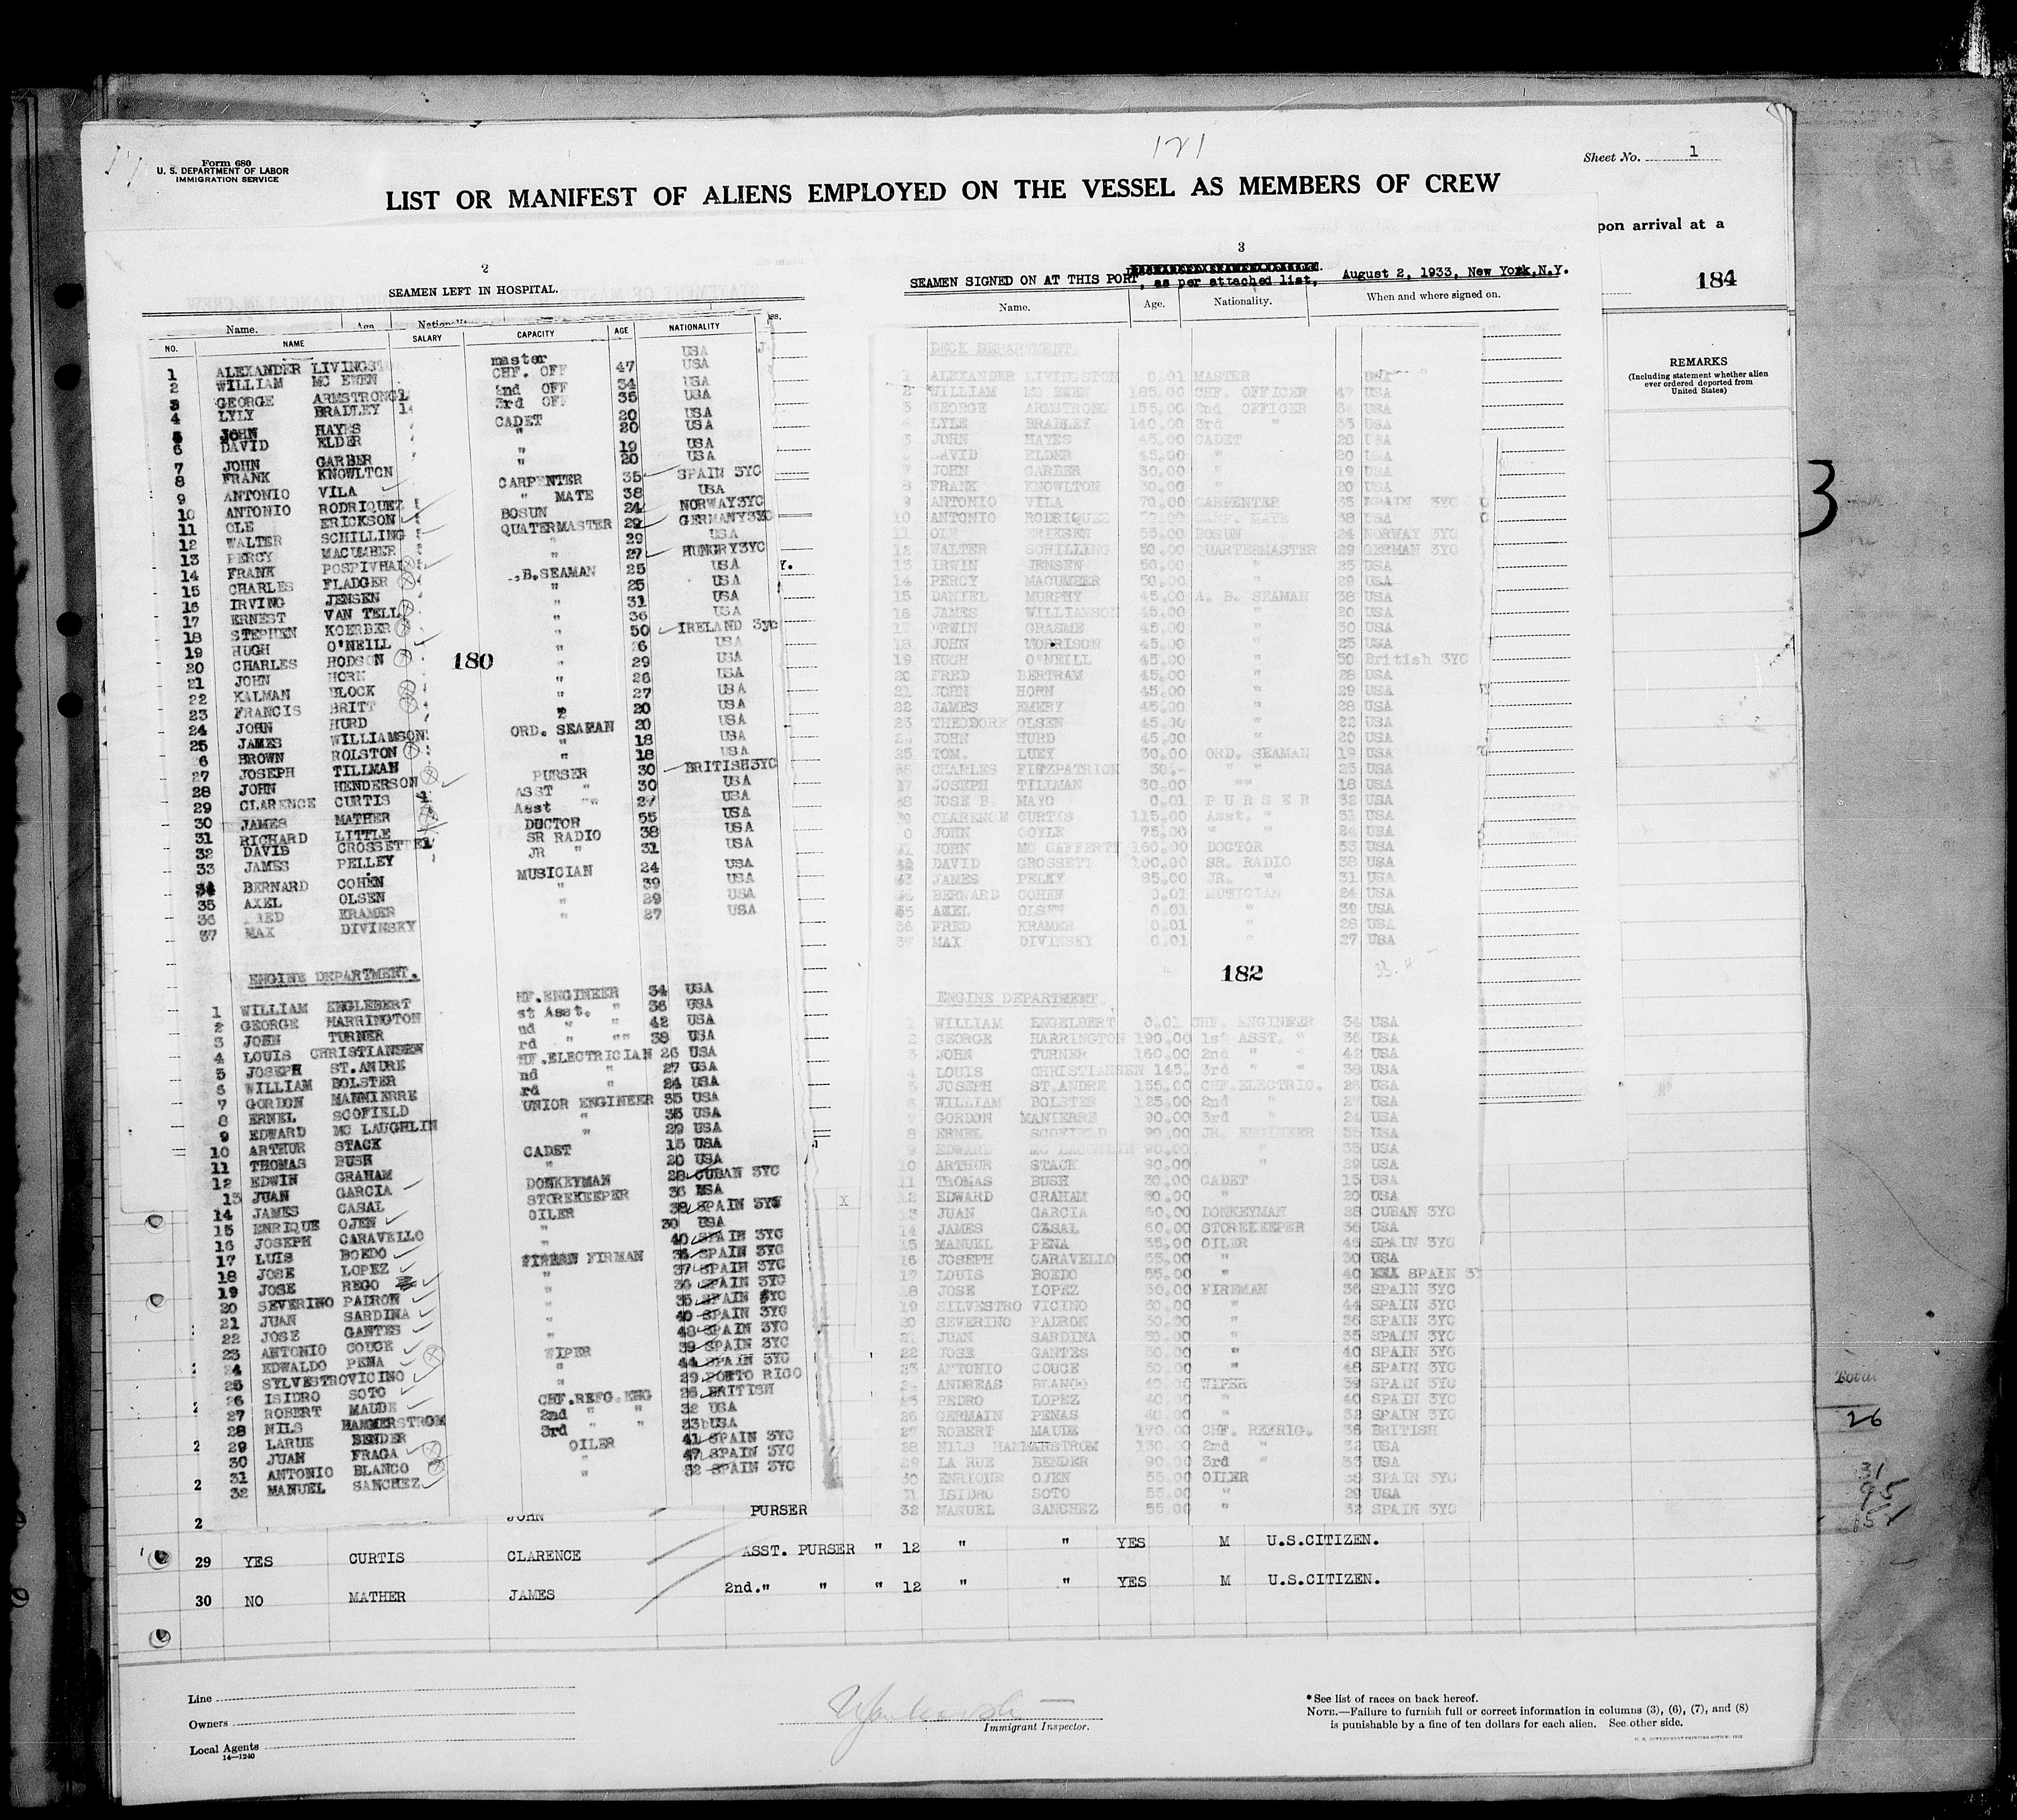 121
Form 680
U. S. DEPARTMENT OF LABOR
IMMIGRATION SERVICE
Sheet No. 1
LIST OR MANIFEST OF ALIENS EMPLOYED ON THE VESSEL AS MEMBERS OF CREW
pon arrival at a
184
REMARKS
(Including statement whether alien
ever ordered deported from
United States)
2
SEAMEN LEFT IN HOSPITAL.
Name. Age Nationality
NO. NAME SALARY CAPACITY AGE NATIONALITY
1 ALEXANDER LIVINGST master USA
2 WILLIAM MC EWEN CHF. OFF 47 USA
3 GEORGE ARMSTRONG 2nd OFF 34 USA
4 LYLY BRADLEY 3rd OFF 35 USA
5 JOHN HAYES CADET 20 USA
6 DAVID ELDER " 20 USA
7 JOHN GARBER " 19 USA
8 FRANK KNOWLTON " 20 USA
9 ANTONIO VILA CARPENTER 35 SPAIN 3YC
10 ANTONIO RODRIQUEZ " MATE 38 USA
11 OLE ERICKSON BOSUN 24 NORWAY3YC
12 WALTER SCHILLING QUATERMASTER 29 GERMANY3YC
13 PERCY MACUMBER " 29 USA
14 FRANK POSPIVHAL " 27 HUNGRY3YC
15 CHARLES FLADGER .B.SEAMAN 25 USA
16 IRVING JENSEN " 25 USA
17 ERNEST VAN TELL " 31 USA
18 STEPHEN KOERBER " 36 USA
19 HUGH O'NEILL " 50 IRELAND 3yc
20 CHARLES HODSON " 26 USA
21 JOHN HORN " 29 USA
22 KALMAN BLOCK " 26 USA
23 FRANCIS BRITT " 27 USA
24 JOHN HURD " 20 USA
25 JAMES WILLIAMSON ORD. SEAMAN 20 USA
6 BROWN ROLSTON " 18 USA
27 JOSEPH TILLMAN " 18 USA
28 JOHN HENDERSON PURSER 30 BRITISH3YC
29 CLARENCE CURTIS ASST " 30 USA
30 JAMES MATHER Asst "" 27 USA
31 RICHARD LITTLE DOCTOR 55 USA
32 DAVID CROSSETTE SR RADIO 38 USA
33 JAMES PELLEY JR " 31 USA
34 BERNARD COHEN MUSICIAN 24 USA
35 AXEL OLSEN " 39 USA
36 FRED KRAMER " 29 USA
37 MAX DIVINSKY " 27 USA
180
ENGINE DEPARTMENT.
1 WILLIAM ENGLEBERT HF.ENGINEER 34 USA
2 GEORGE HARRINGTON st Asst. " 36 USA
3 JOHN TURNER nd " " 42 USA
4 LOUIS CHRISTIANSEN rd " "" 38 USA
5 JOSEPH ST.ANDRE HF.ELECTRICIAN 26 USA
6 WILLIAM BOLSTER nd " 27 USA
7 GORDON MANMIERRE rd " 24 USA
8 ERNEL SCOFIELD UNIOR ENGINEER 35 USA
9 EDWARD MC LAUGHLIN " 35 USA
10 ARTHUR STACK " 29 USA
11 THOMAS BUSH CADET 15 USA
12 EDWIN GRAHAM " 20 USA
13 JUAN GARCIA DONKEYMAN 28 CUBAN 3YC
14 JAMES CASAL STOREKEEPER 36 USA
15 ENRIQUE OJEN OILER 38 SPAIN 3YC
16 JOSEPH CARAVELLO " 30 USA
17 LUIS BOEDO " 40 SPAIN 3YC
18 JOSE LOPEZ FIRMAN 36 SPAIN 3YC
19 JOSE REGO " 37 SPAIN 3YC
20 SEVERINO PADRON " 36 SPAIN 3YC
21 JUAN SARDINA " 35 SPAIN 3YC
22 JOSE GANTES " 40 SPAIN 3YC
23 ANTONIO COUCE " 48 SPAIN 3YC
24 EDWALDO PENA WIPER 39 SPAIN 3YC
25 SYLVESTROVICINO " 44 SPAIN 3YC
26 ISIDRO SOTO " 29 PORTO RICO
27 ROBERT MAUDE CHF.REFG.ENG 26 BRITISH
28 NILS HAMMERSTROM 2nd " " 32 USA
29 LARUE BENDER 3rd " " 33 USA
30 JUAN FRAGA OILER 41 SPAIN 3YC
31 ANTONIO BLANCO " 47 SPAIN 3YC
32 MANUEL SANCHEZ " 32 SPAIN 3YC
3
SEAMEN SIGNED ON AT THIS PORT, as per attached list, August 2, 1933, New York,N.Y.
Name. Age. Nationality. When and where signed on.
DECK DEPARTMENT.
1 ALEXANDER LIVINGSTON 0.01 MASTER USA
2 WILLIAM MC EWEN 185.00 CHF. OFFICER 47 USA
3 GEORGE ARMSTRONG 155.00 2nd. OFFICER 34 USA
4 LYLE BRADLEY 140.00 3rd " 35 USA
5 JOHN HAYES 45.00 CADET 20 USA
DAVID ELDER 45.00 " 20 USA
7 JOHN GARBER 30.00 " 19 USA
8 FRANK KNOWLTON 30.00 " 20 USA
9 ANTONIO VILA 70.00 CARPENTER 35 SPAIN 3YC
10 ANTONIO RODRIQUEZ MATE 38 USA
11 OLE ERIKSEN 55.00 BOSUN 24 NORWAY 3YC
12 WALTER SCHILLING 50.00 QUARTERMASTER 29 GERMAN 3YC
13 IRWIN JENSEN 50.00 " 25 USA
14 PERCY MACUMBER 50.00 " 29 USA
15 DANIEL MURPHY 45.00 A. B. SEAMAN 38 USA
16 JAMES WILLIAMSON 45.00 " 20 USA
17 ERWIN GRASME 45.00 " 30 USA
18 JOHN MORRISON 45.00 " 25 USA
19 HUGH O'NEILL 45.00 " 50 British 3YC
20 FRED BERTRAM 45.00 " 28 USA
21 JOHN HORN 45.00 " 29 USA
22 JAMES EMERY 45.00 " 28 USA
23 THEODORE OLSEN 45.00 " 22 USA
24 JOHN HURD 45.00 " 20 USA
25 TOM. LUEY 30.00 ORD. SEAMAN 19 USA
26 CHARLES FITZPATRICK 30.- " " 25 USA
27 JOSEPH TILLMAN 30.00 "" 18 USA
28 JOSE B. MAYO 0.01 PURSER 32 USA
29 CLARENCE CURTIS 115.00 Asst. " 31 USA
0 JOHN COYLE 75.00 " " 24 USA
31 JOHN MC CAFFERTY 160.00 DOCTOR 53 USA
32 DAVID GROSSETT 100.00 SR. RADIO 38 USA
33 JAMES PELKY 85.00 JR. " 31 USA
34 BERNARD COHEN 0.01 MUSICIAN 24 USA
35 AXEL OLSEN 0.01 " 39 USA
36 FRED KRAMER 0.01 " 28 USA
37 MAX DIVINSKY 0.01 " 27 USA
182
ENGINE DEPARTMENT.
1 WILLIAM ENGELBERT 0.01 CHF. ENGINEER 34 USA
2 GEORGE HARRINGTON 190.00 1st ASST. " 36 USA
3 JOHN TURNER 160.00 2nd " " 42 USA
4 LOUIS CHRISTIANSEN 145. 3rd " " 38 USA
5 JOSEPH ST.ANDRE 155.00 CHF.ELECTRIC. 26 USA
6 WILLIAM BOLSTER 125.00 2nd " 27 USA
GORDON MANIERRE 90.00 3rd " 24 USA
8 ERNEL SCOFIELD 90.00 JR. ENGINEER 35 USA
9 EDWARD MC LAUGHLIN 90.00 " 35 USA
10 ARTHUR STACK 90.00 " 29 USA
11 THOMAS BUSH 30.00 CADET 15 USA
12 EDWARD GRAHAM 30.00 " 20 USA
13 JUAN GARCIA 60.00 DONKEYMAN 28 CUBAN 3YC
14 JAMES CASAL 60.00 STOREKEEPER 36 USA
15 MANUEL PENA 55.00 OILER 46 SPAIN 3YC
16 JOSEPH CARAVELLO 55.00 " 30 USA
17 LOUIS BOEDO 55.00 " 40 SPAIN 3Y
18 JOSE LOPEZ 50.00 FIREMAN 36 SPAIN 3YC
19 SILVESTRO VICINO 50.00 " 44 SPAIN 3YC
20 SEVERINO PADRON 50.00 " 36 SPAIN 3YC
21 JUAN SARDINA 50.00 " 35 SPAIN 3YC
22 JOSE GANTES 50.00 " 40 SPAIN 3YC
23 ANTONIO COUCE 50.00 " 48 SPAIN 3YC
24 ANDREAS BLANCO 40.00 WIPER 39 SPAIN 3YC
25 PEDRO LOPEZ 40.00 " 40 SPAIN 3YC
26 GERMAIN PENAS 40.00 " 32 SPAIN 3YC
27 ROBERT MAUDE 170.00 CHF. REFRIG. 36 BRITISH
28 NILS HAMMERSTROM 130.00 2nd " 32 USA
29 LA RUE BENDER 90.00 3rd " 33 USA
30 ENRIQUE OJEN 55.00 OILER 38 SPAIN 3YC
31 ISIDRO SOTO 55.00 " 29 USA
32 MANUEL SANCHEZ 55.00 " 32 SPAIN 3YC
3
X
Total
26
31
95
152
2 JOHN PURSER
29 YES CURTIS CLARENCE ASST. PURSER " 12 " " YES M U.S.CITIZEN.
30 NO MATHER JAMES 2nd." " " 12 " " YES M U.S.CITIZEN.
Line
Owners
Local Agents
14—1240
Immigrant Inspector.
*See list of races on back hereof.
NOTE.—Failure to furnish full or correct information in columns (3), (6), (7), and (8)
is punishable by a fine of ten dollars for each alien. See other side.
U. S. GOVERNMENT PRINTING OFFICE